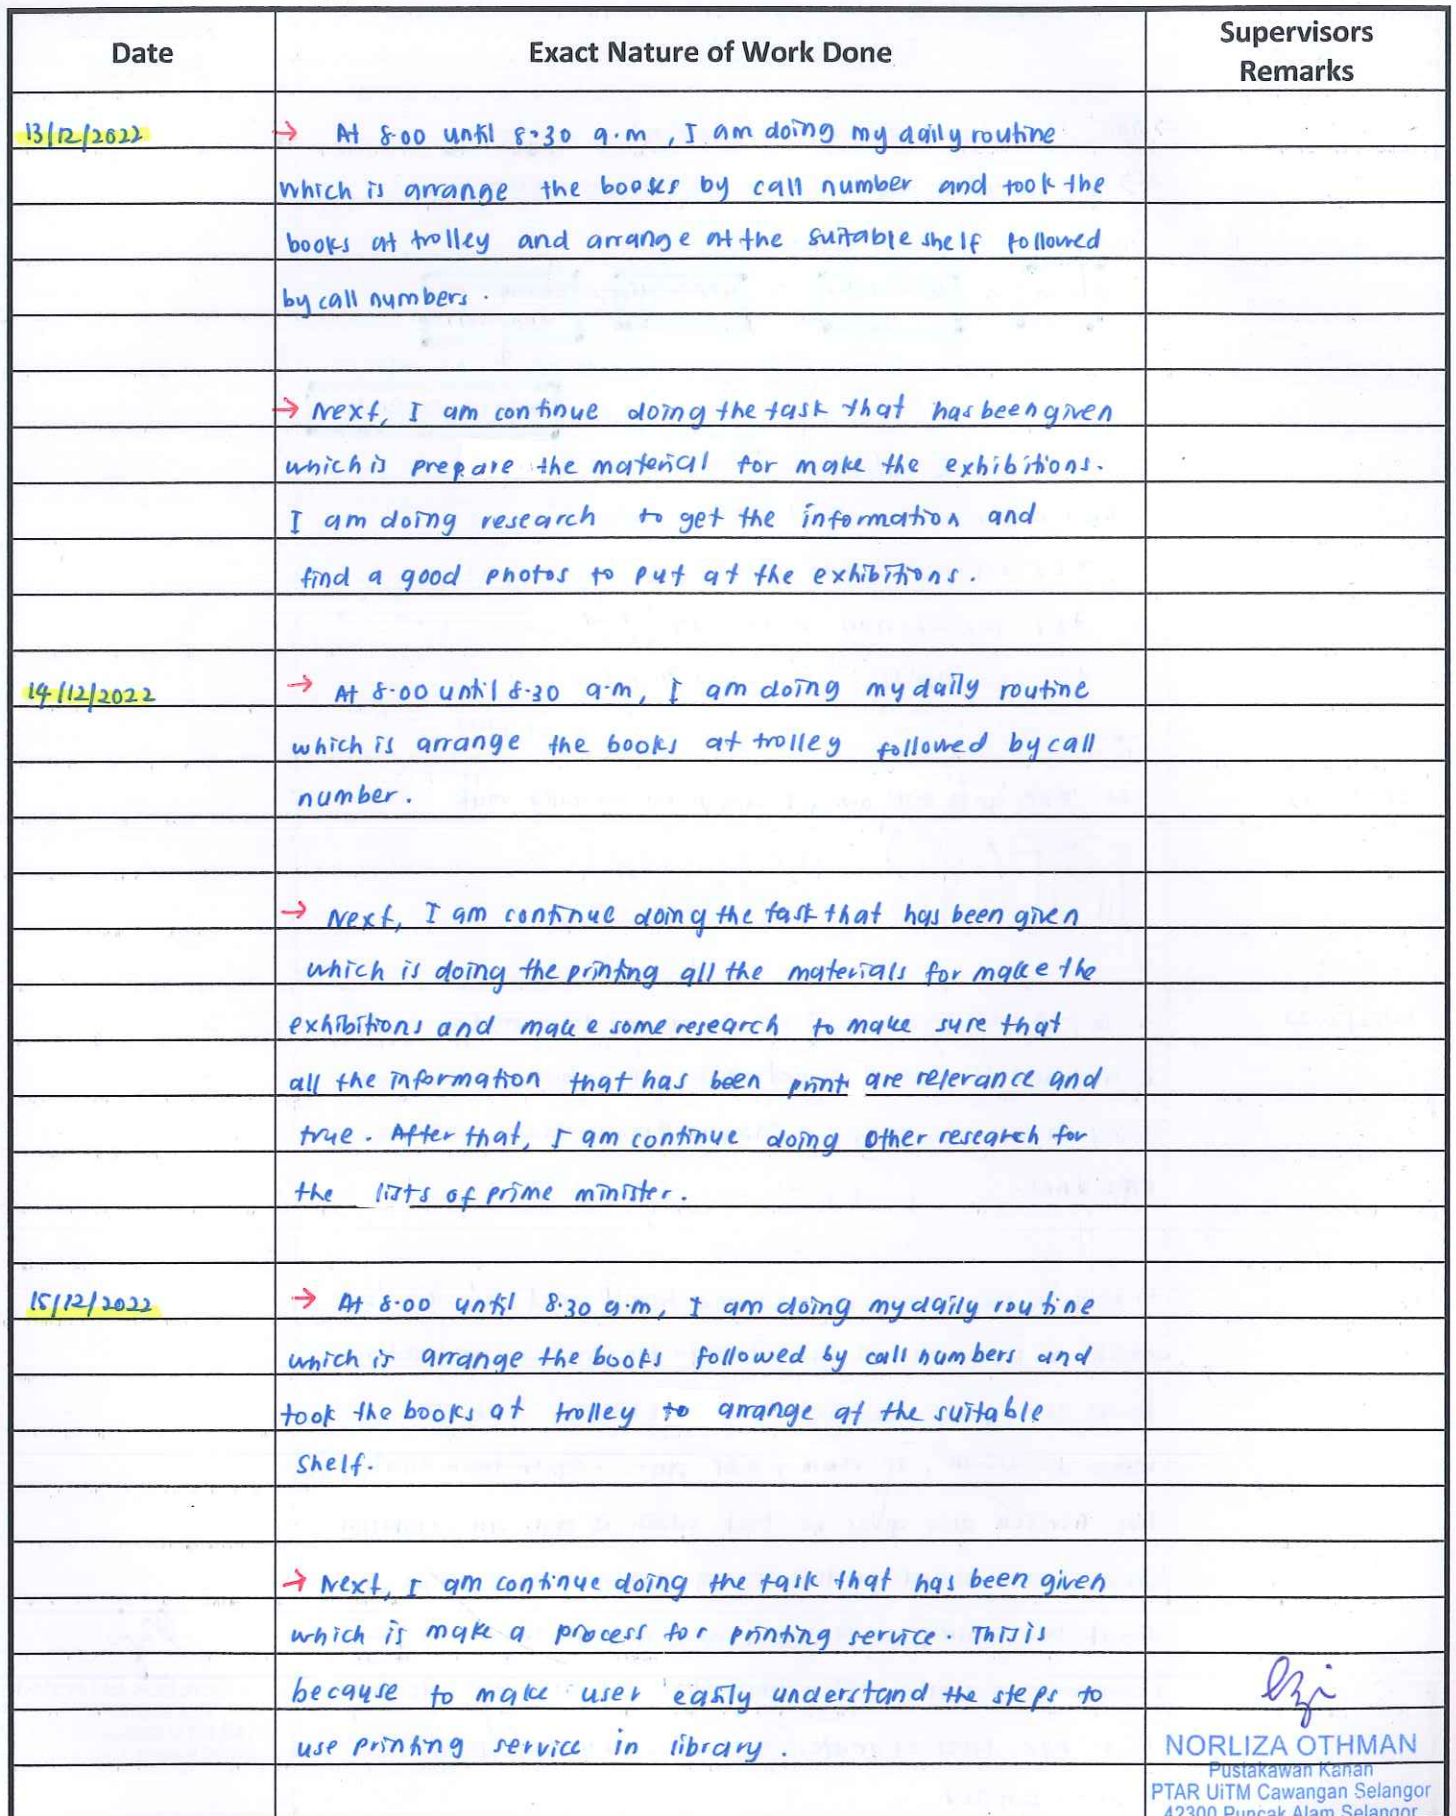 Date
Exact Nature of Work Done
Supervisors
Remarks
13/12/2022
→ At 8.00 until 8.30 a.m, I am doing my daily routine
which is arrange the books by call number and took the
books at trolley and arrange at the suitable shelf followed
by call numbers.
→ Next, I am continue doing the task that has been given
which is prepare the material for make the exhibitions.
I am doing research to get the information and
find a good photos to put at the exhibitions.
14/12/2022
→ At 8.00 until 8.30 a.m, I am doing my daily routine
which is arrange the books at trolley followed by call
number.
→ Next, I am continue doing the task that has been given
which is doing the printing all the materials for make the
exhibitions and make some research to make sure that
all the information that has been print are relevance and
true. After that, I am continue doing other research for
the lists of prime minister.
15/12/2022
→ At 8.00 until 8.30 a.m, I am doing my daily routine
which is arrange the books followed by call numbers and
took the books at trolley to arrange at the suitable
shelf.
→ Next, I am continue doing the task that has been given
which is make a process for printing service. This is
because to make user easily understand the steps to
use printing service in library.
NORLIZA OTHMAN
Pustakawan Kanan
PTAR UiTM Cawangan Selangor
42300 Puncak Alam Selangor